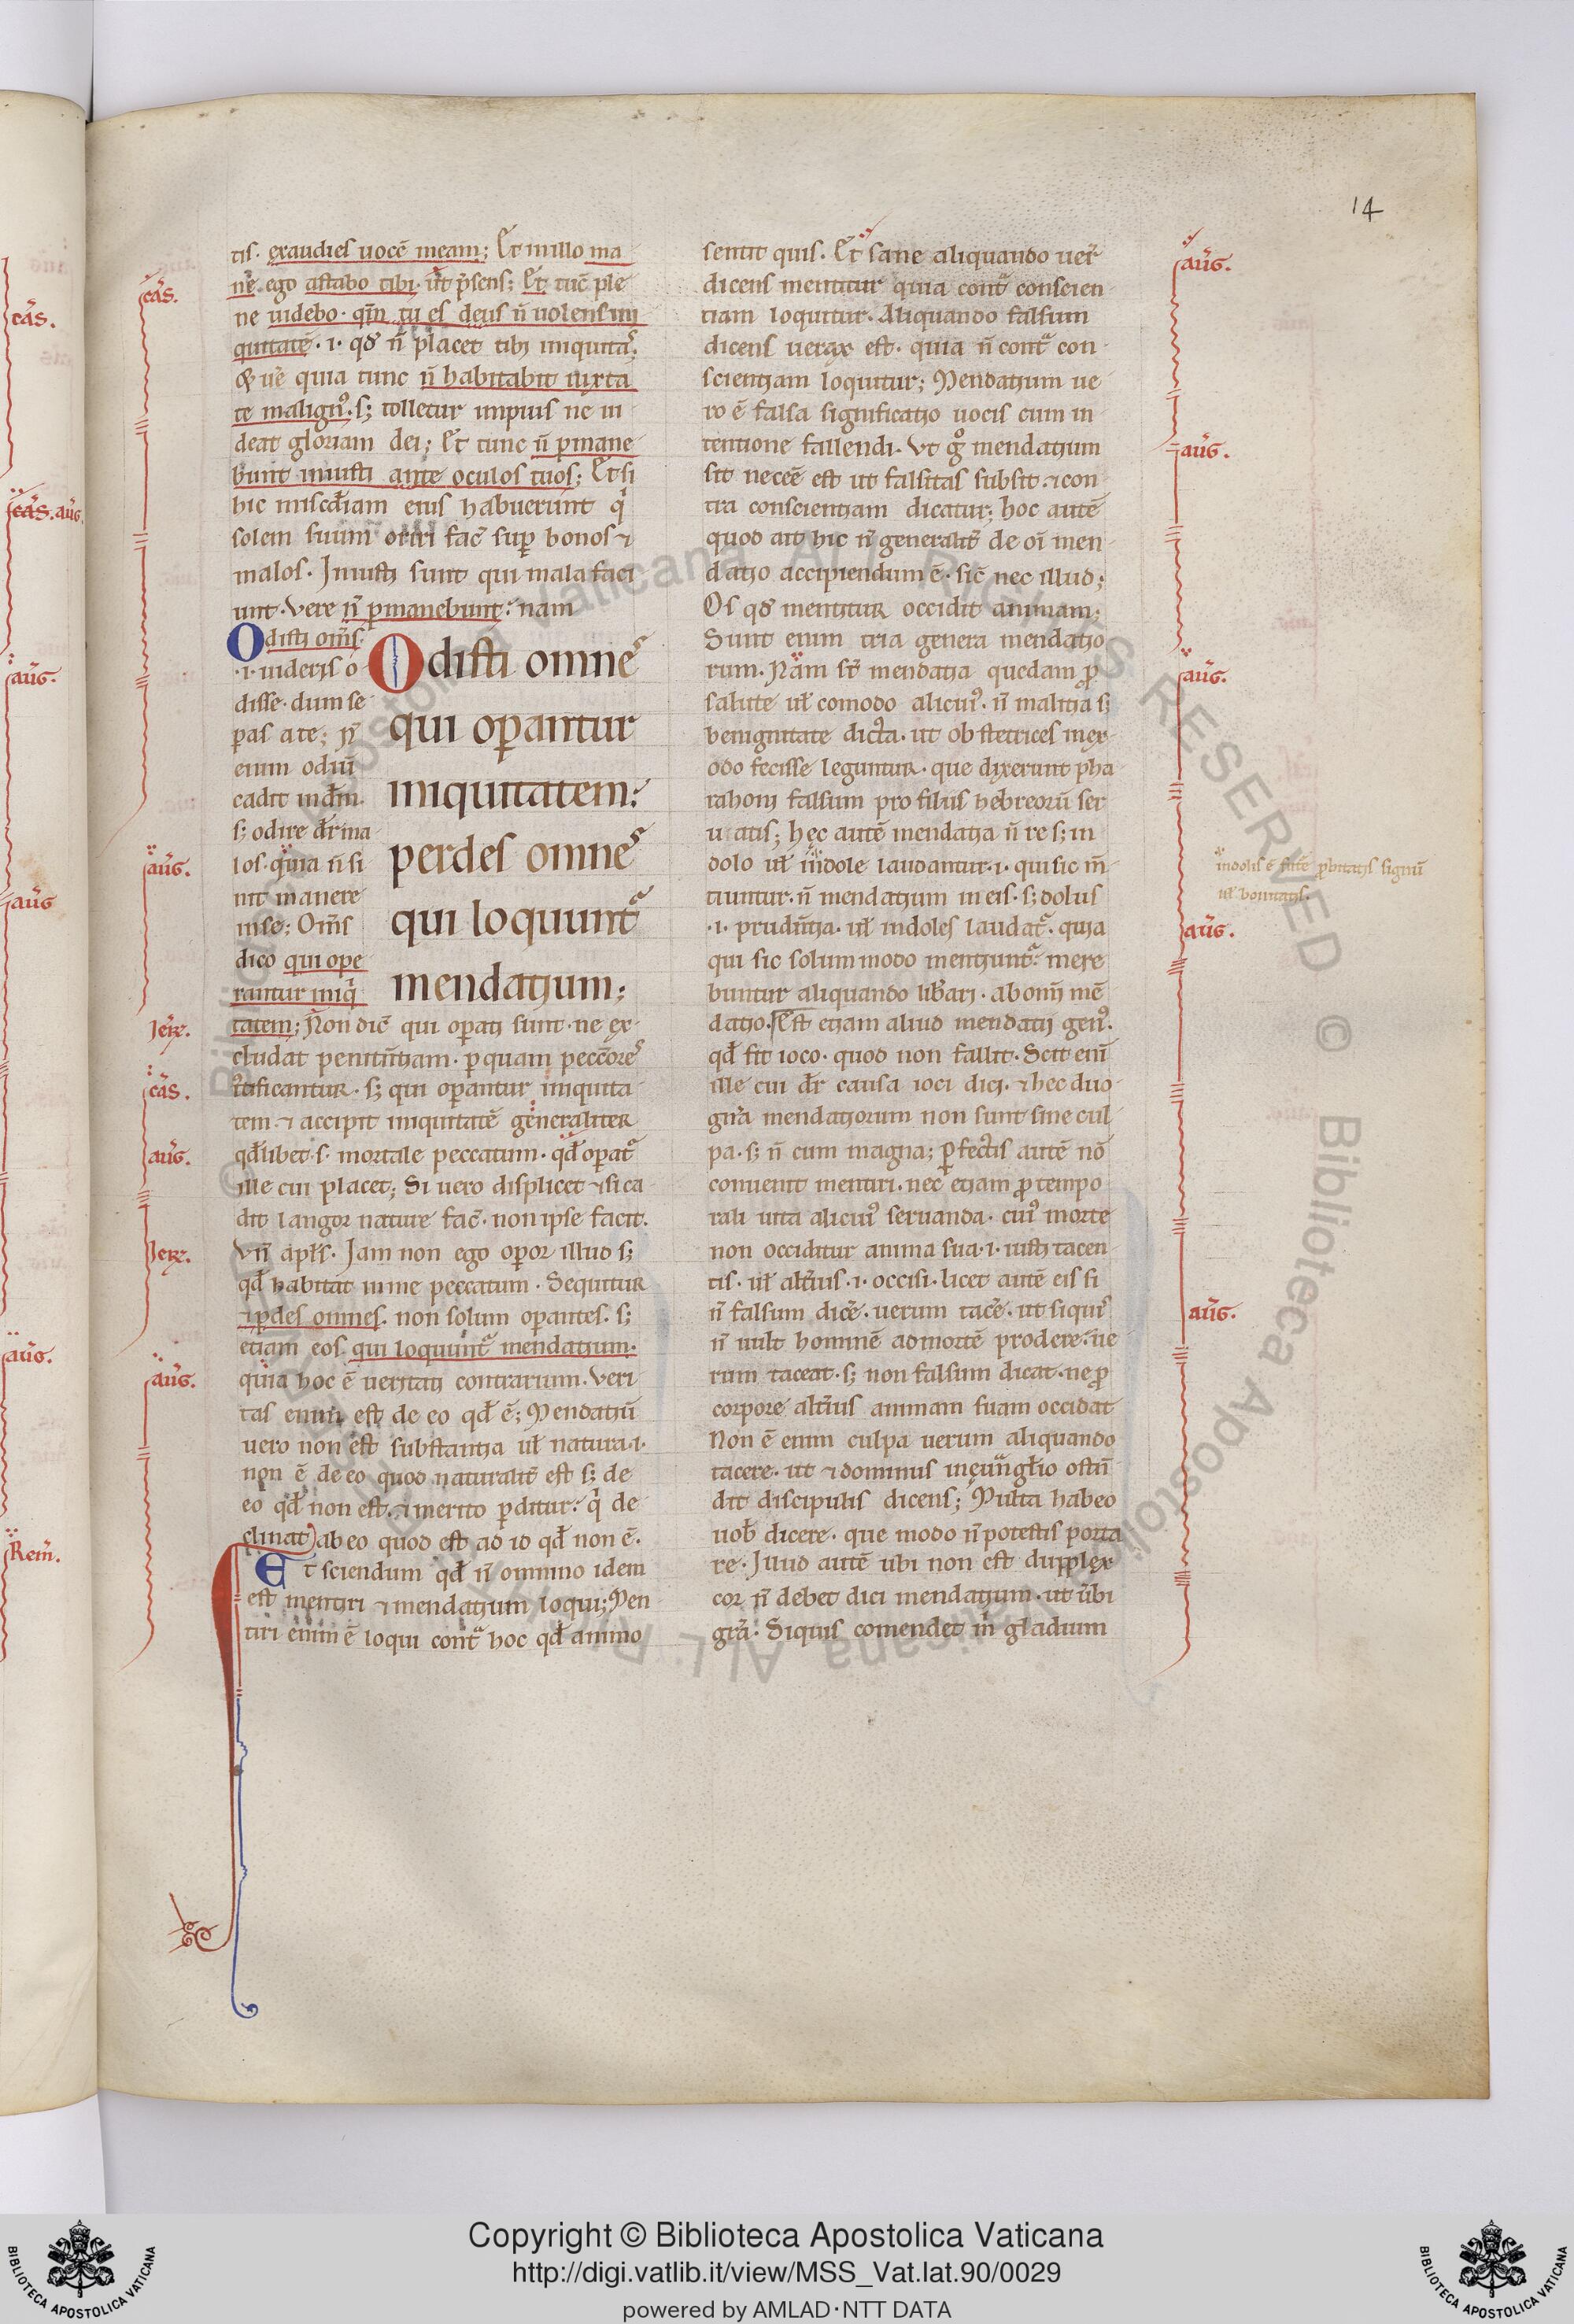 14
tis. exaudies uocē meam; Et in illo ma
ne. ego astabo tibi. ut p̄sens; Et tūc ple
ne uidebo. qm̄ tu es deus n̄ uolens ini
quitatē .i. qđ n̄ placet tibi iniquitas.
& uere quia tunc n̄ habitabit iuxta
te malign⁹. s; tolletur impius ne ui
deat gloriam dei; Et tunc n̄ p̱mane
bunt iniusti ante oculos tuos; Et si
hic mīscđiam eius habuerint qi
solem suum oriri fac̄ sup̱ bonos ⁊
malos. Iniusti sunt qui mala faci
unt. Vere n̄ p̱manebunt: nam
Odisti om̄s
.i. uideris o
disse. dum se
p̱as a te; N̄
enim odiū
cadit in dm̄.
s; odire dr̄ ma
los. quia n̄ si
nit manere
in se; Om̄s
dico qui ope
rantur iniqi
Odisti omnes
qui op̱antur
iniquitatem:
perdes omnes
qui loquuntr
mendatium;
tatem; Non dic̄ qui op̱ati sunt. ne ex
cludat penitn̄tiam. p̱ quam pecc̄ores
iustificantur. s; qui op̱antur iniquita
tem. ⁊ accipit iniquitatē generaliter
qđlibet. s. mortale peccatum. qđ op̱atr
ille cui placet; Si uero displicet ⁊ si ca
dit langor nature fac̄. non ipse facit.
Vn̄ apl̄s. Iam non ego op̱or illud s;
qđ habitat in me peccatum. Sequitur
⁊ p̱des omnes. non solum op̱antes. s;
etiam eos qui loquuntr mendatium.
quia hoc ē ueritati contrarium. Veri
tas enim est de eo qđ ē; Mendatiū
uero non est substantia ul̄ natura .i.
non ē de eo quod naturalit̄ est s; de
eo qđ non est. ⁊ merito p̱ditur: qi de
clinat ab eo quod est ad id qđ non ē.
Et sciendum qđ n̄ omnino idem
est mentiri ⁊ mendatium loqui; Men
tiri enim ē loqui contra hoc qđ animo
sentit quis. Et sane aliquando uer̄
dicens mentitur quia contra conscien
tiam loquitur. Aliquando falsum
dicens uerax est. quia n̄ contra con
scientiam loquitur; Mendatium ue
ro ē falsa significatio uocis cum in
tentione fallendi. Vt go mendatium
sit nec̄ē est ut falsitas subsit. ⁊ con
tra conscientiam dicatur; hoc autē
quod ait hic n̄ generalit̄ de oi men
datio accipiendum ē. sic̄ nec illud;
Os qđ mentitur occidit animam;
Sunt enim tria genera mendatio
rum. Nam st̄ mendatia quedam ꝓ
salute ul̄ comodo alicui⁹. n̄ malitia s;
benignitate dicta. ut obstetrices in ex
odo fecisse leguntur. que dixerunt pha
raboni falsum pro filiis hebreorū ser
uatis; hęc autē mendatia n̄ re s; in
dolo ul̄ indole laudantur .i. qui sic m̄
tiuntur. n̄ mendatium in eis. s; dolus
.i. prudn̄tia. ul̄ indoles laudatr. quia
qui sic solum modo mentiuntr: mere
buntur aliquando libari. ab omī mē
datio. Est etiam aliud mendatii gen⁹.
qđ fit ioco. quod non fallit. Scit enī
ille cui dr̄ causa ioci dici. ⁊ hec duo
gn̄a mendatiorum non sunt sine cul
pa. s; n̄ cum magna; p̱fectis autē nō
conuenit mentiri. nec etiam ꝓ tempo
rali uita alicui⁹ seruanda. cui⁹ morte
non occiditur anima sua .i. iusti tacen
tis. ul̄ alt̄ius .i. occisi. licet autē eis si
n̄ falsum dic̄e. uerum tac̄e. ut siquis
n̄ uult hominē ad mortē prodere: ue
rum taceat. s; non falsum dicat. ne ꝓ
corpore alt̄ius animam suam occidat
Non ē enim culpa uerum aliquando
tacere. ut ⁊ dominus in eūnglio ostn̄
dit discipulis dicens; Multa habeo
uob̄ dicere. que modo n̄ potestis porta
re. Illud autē ubi non est dupplex
cor n̄ debet dici mendatium. ut ūbi
gra. Siquis comendet in̄ gladium
cas.
aug.
Ier̄.
cas.
aug.
Ier̄.
aug.
aug.
aug.
aug.
indolis ē future probitatis signū
ul̄ bonitatis.
aug.
aug.
cas.
cas. aug.
aug.
aug
aug.
Rem̄.
Copyright © Biblioteca Apostolica Vaticana
http://digi.vatlib.it/view/MSS_Vat.lat.90/0029
powered by AMLAD·NTT DATA
BIBLIOTECA APOSTOLICA VATICANA
BIBLIOTECA APOSTOLICA VATICANA